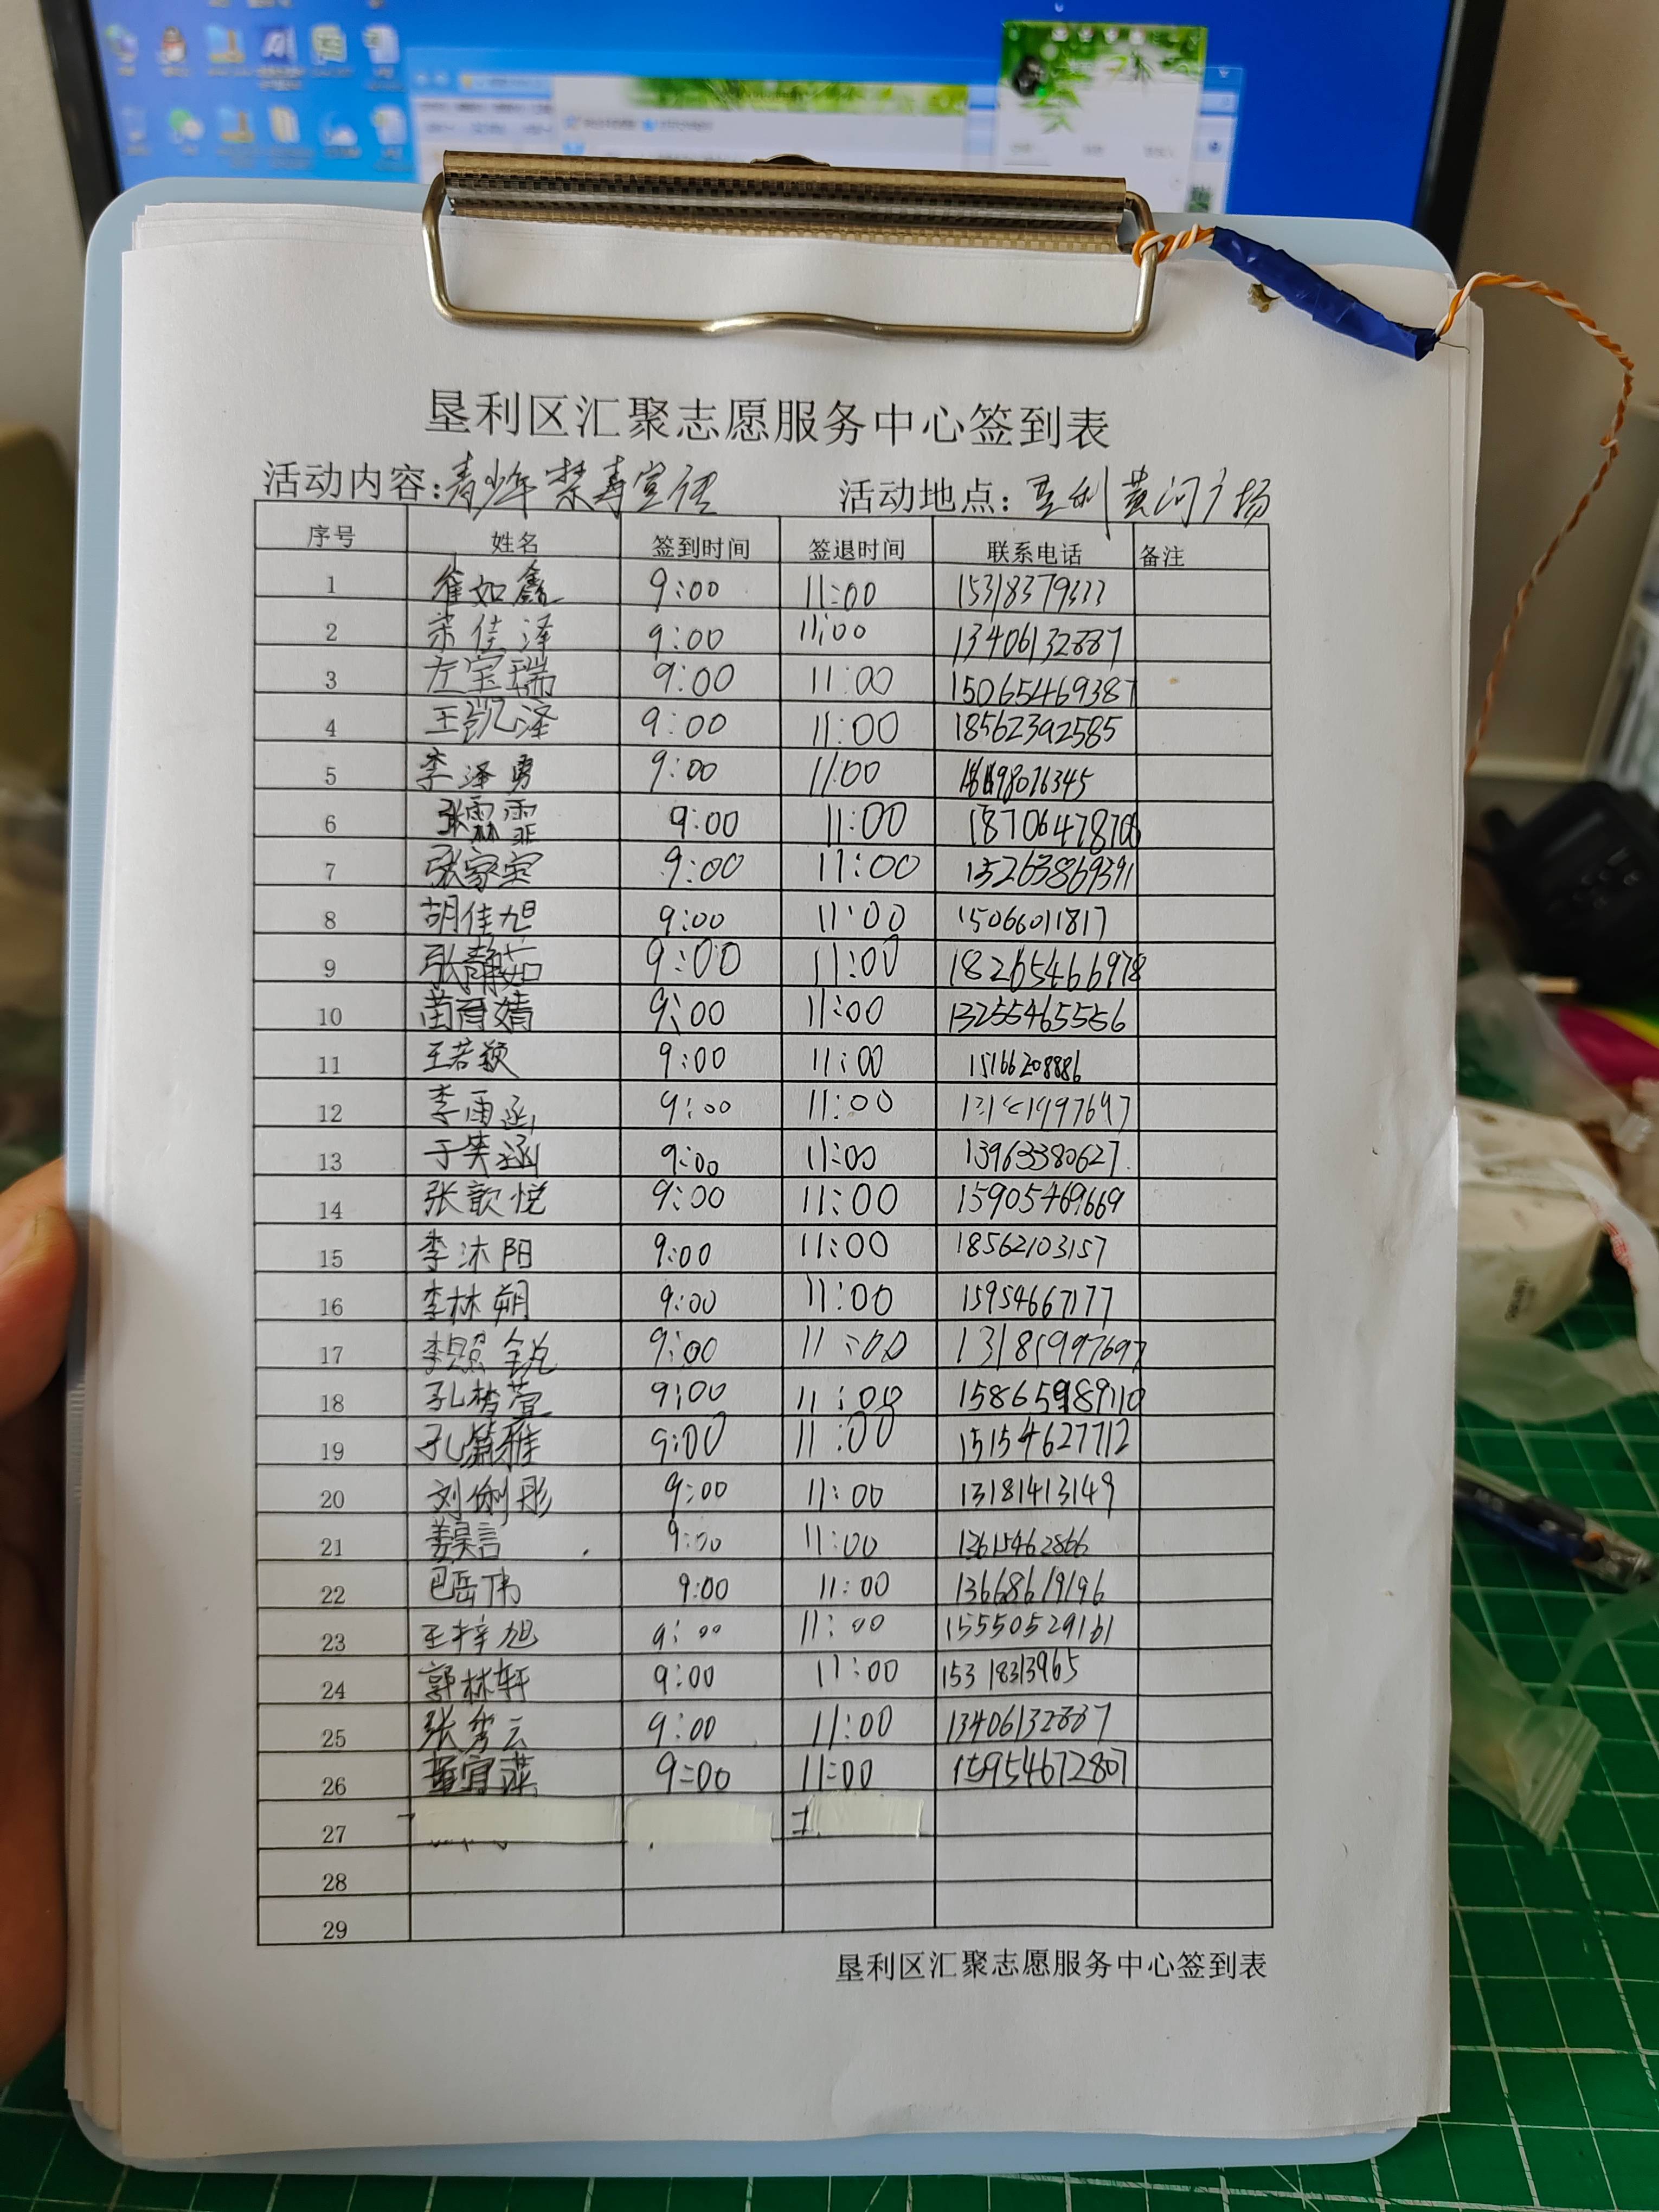 垦利区汇聚志愿服务中心签到表
活动内容:青少年禁毒宣传 活动地点:垦利黄河广场
序号 姓名 签到时间 签退时间 联系电话 备注
1 崔如鑫 9:00 11:00 15318379333
2 宋佳泽 9:00 11:00 13406132887
3 左宝瑞 9:00 11:00 15065469387
4 王凯泽 9:00 11:00 18562392585
5 李泽勇 9:00 11:00
6 张霖霏 9:00 11:00 18706478706
7 张家宝 9:00 11:00 15263869391
8 胡佳旭 9:00 11:00 15066011817
9 张静茹 9:00 11:00 18265466978
10 苗育婧 9:00 11:00 13255465556
11 王若颖 9:00 11:00 15166208886
12 李雨函 9:00 11:00
13 于笑涵 9:00 11:00 13963380627
14 张歆悦 9:00 11:00 15905469669
15 李沐阳 9:00 11:00 18562103157
16 李林朔 9:00 11:00 15954667177
17 李照锐 9:00 11:00 13181997697
18 孔梦萱 9:00 11:00 15865989110
19 9:00 11:00 15154627712
20 刘俐彤 9:00 11:00 13181413149
21 姜昊言 9:00 11:00 13615462866
22 巴岳伟 9:00 11:00 13668619196
23 王梓旭 9:00 11:00 15550529161
24 郭林轩 9:00 11:00 15318313965
25 张秀云 9:00 11:00 13406132887
26 9:00 11:00 15954672807
27
28
29
垦利区汇聚志愿服务中心签到表